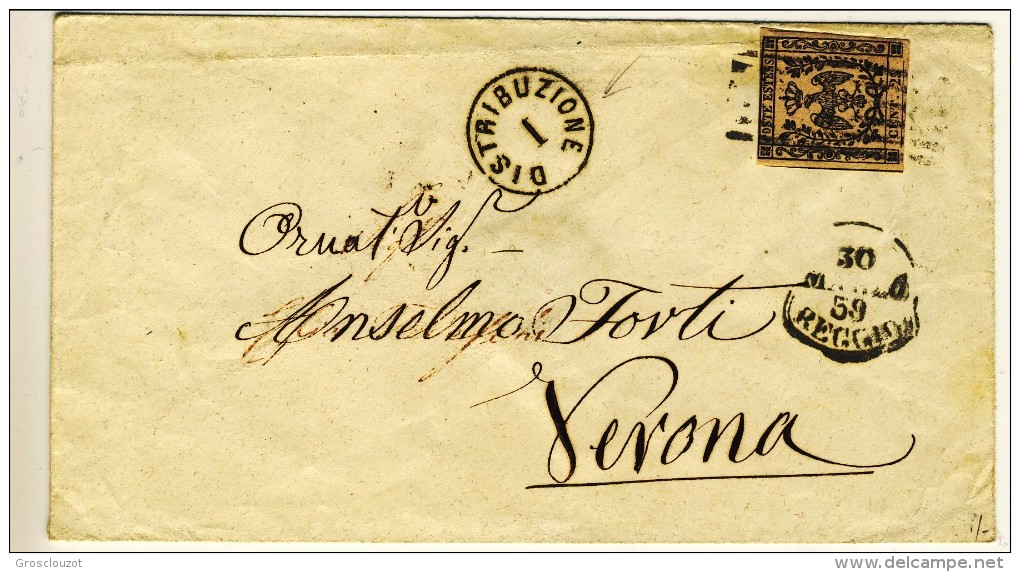 DISTRIBUZIONE
1
POSTE ESTENSI
CENT. 25
30
MARZO
59
REGGIO
Ornat. Sig.
Anselmo Forti
Verona
Grosclouzot
delcampe.net